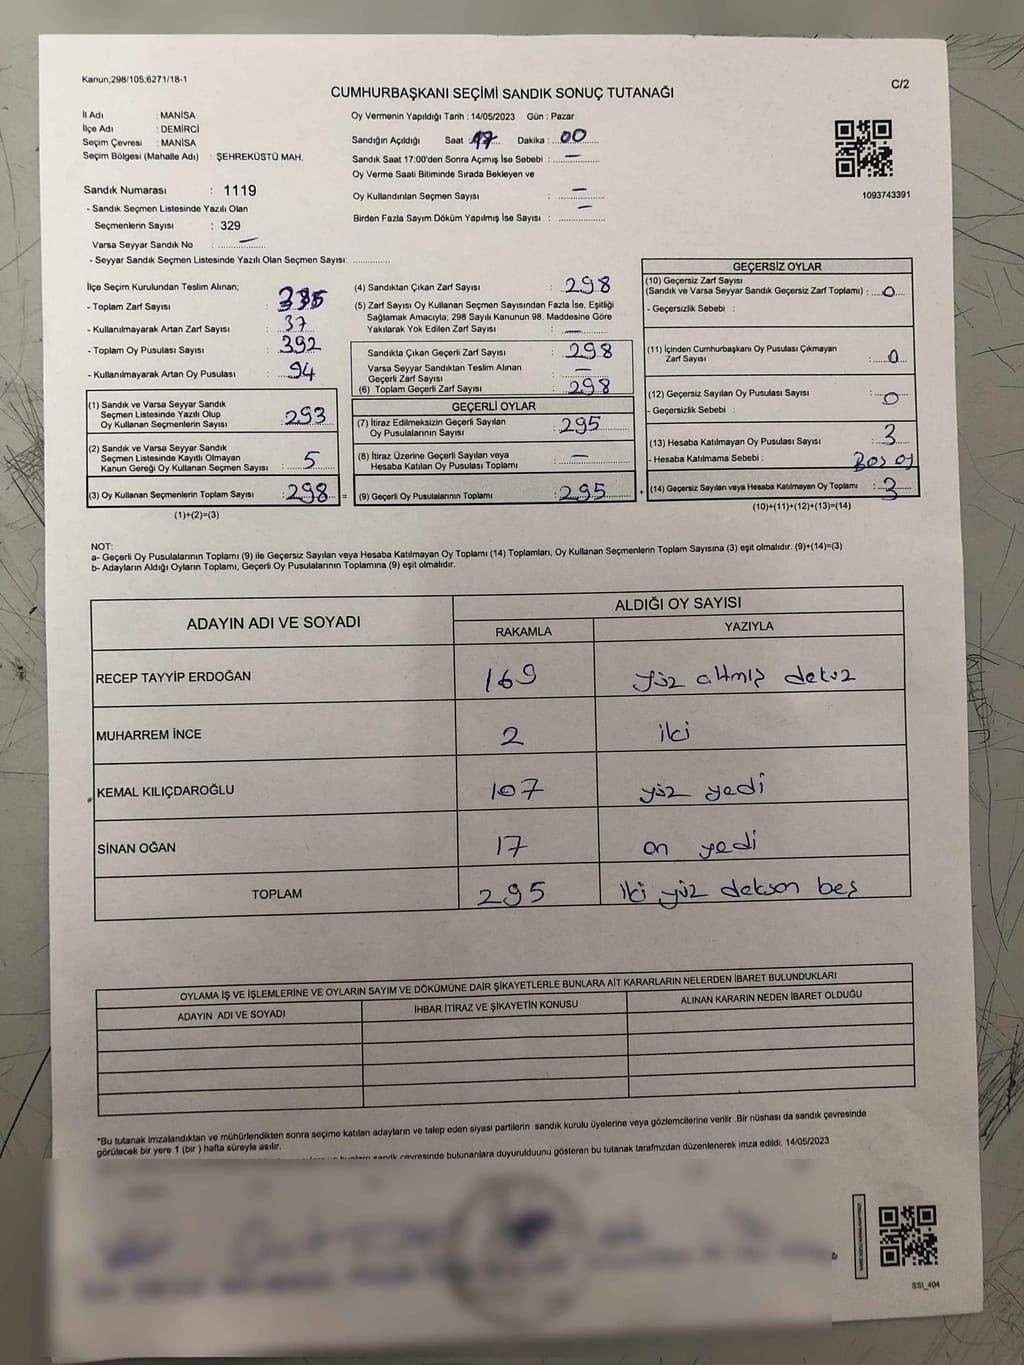 Kanun;298/105;6271/18-1
C/2
CUMHURBAŞKANI SEÇİMİ SANDIK SONUÇ TUTANAĞI
İl Adı : MANİSA
İlçe Adı : DEMİRCİ
Seçim Çevresi : MANİSA
Seçim Bölgesi (Mahalle Adı) : ŞEHREKÜSTÜ MAH.
Sandık Numarası : 1119
- Sandık Seçmen Listesinde Yazılı Olan
Seçmenlerin Sayısı : 329
Varsa Seyyar Sandık No : —
- Seyyar Sandık Seçmen Listesinde Yazılı Olan Seçmen Sayısı: ............
Oy Vermenin Yapıldığı Tarih : 14/05/2023 Gün : Pazar
Sandığın Açıldığı Saat : 17 Dakika : 00
Sandık Saat 17:00'den Sonra Açımış İse Sebebi : —
Oy Verme Saati Bitiminde Sırada Bekleyen ve
Oy Kullandırılan Seçmen Sayısı : —
Birden Fazla Sayım Döküm Yapılmış İse Sayısı : —
1093743391
İlçe Seçim Kurulundan Teslim Alınan;
- Toplam Zarf Sayısı : 335
- Kullanılmayarak Artan Zarf Sayısı : 37
- Toplam Oy Pusulası Sayısı : 392
- Kullanılmayarak Artan Oy Pusulası : 94
(1) Sandık ve Varsa Seyyar Sandık
Seçmen Listesinde Yazılı Olup
Oy Kullanan Seçmenlerin Sayısı : 293
(2) Sandık ve Varsa Seyyar Sandık
Seçmen Listesinde Kayıtlı Olmayan
Kanun Gereği Oy Kullanan Seçmen Sayısı : 5
(3) Oy Kullanan Seçmenlerin Toplam Sayısı : 298 =
(1)+(2)=(3)
(4) Sandıktan Çıkan Zarf Sayısı : 298
(5) Zarf Sayısı Oy Kullanan Seçmen Sayısından Fazla İse, Eşitliği
Sağlamak Amacıyla; 298 Sayılı Kanunun 98. Maddesine Göre
Yakılarak Yok Edilen Zarf Sayısı : —
Sandıkta Çıkan Geçerli Zarf Sayısı : 298
Varsa Seyyar Sandıktan Teslim Alınan
Geçerli Zarf Sayısı : —
(6) Toplam Geçerli Zarf Sayısı : 298
GEÇERLİ OYLAR
(7) İtiraz Edilmeksizin Geçerli Sayılan
Oy Pusulalarının Sayısı : 295
(8) İtiraz Üzerine Geçerli Sayılan veya
Hesaba Katılan Oy Pusulası Toplamı : —
(9) Geçerli Oy Pusulalarının Toplamı : 295 +
GEÇERSİZ OYLAR
(10) Geçersiz Zarf Sayısı
(Sandık ve Varsa Seyyar Sandık Geçersiz Zarf Toplamı) : 0
- Geçersizlik Sebebi :
(11) İçinden Cumhurbaşkanı Oy Pusulası Çıkmayan
Zarf Sayısı : 0
(12) Geçersiz Sayılan Oy Pusulası Sayısı : 0
- Geçersizlik Sebebi :
(13) Hesaba Katılmayan Oy Pusulası Sayısı : 3
- Hesaba Katılmama Sebebi : Boş oy
(14) Geçersiz Sayılan veya Hesaba Katılmayan Oy Toplamı : 3
(10)+(11)+(12)+(13)=(14)
NOT:
a- Geçerli Oy Pusulalarının Toplamı (9) ile Geçersiz Sayılan veya Hesaba Katılmayan Oy Toplamı (14) Toplamları, Oy Kullanan Seçmenlerin Toplam Sayısına (3) eşit olmalıdır. (9)+(14)=(3)
b- Adayların Aldığı Oyların Toplamı, Geçerli Oy Pusulalarının Toplamına (9) eşit olmalıdır.
ADAYIN ADI VE SOYADI
ALDIĞI OY SAYISI
RAKAMLA YAZIYLA
RECEP TAYYİP ERDOĞAN 169 yüz altmış dokuz
MUHARREM İNCE 2 iki
KEMAL KILIÇDAROĞLU 107 yüz yedi
SİNAN OĞAN 17 on yedi
TOPLAM 295 iki yüz dokson beş
OYLAMA İŞ VE İŞLEMLERİNE VE OYLARIN SAYIM VE DÖKÜMÜNE DAİR ŞİKAYETLERLE BUNLARA AİT KARARLARIN NELERDEN İBARET BULUNDUKLARI
ADAYIN ADI VE SOYADI İHBAR İTİRAZ VE ŞİKAYETİN KONUSU ALINAN KARARIN NEDEN İBARET OLDUĞU
*Bu tutanak imzalandıktan ve mühürlendikten sonra seçime katılan adayların ve talep eden siyasi partilerin sandık kurulu üyelerine veya gözlemcilerine verilir .Bir nüshası da sandık çevresinde
görülecek bir yere 1 (bir ) hafta süreyle asılır.
sandık çevresinde bulunanlara duyurulduunu gösteren bu tutanak tarafmzdan düzenlenerek imza edildi. 14/05/2023
SSI_404